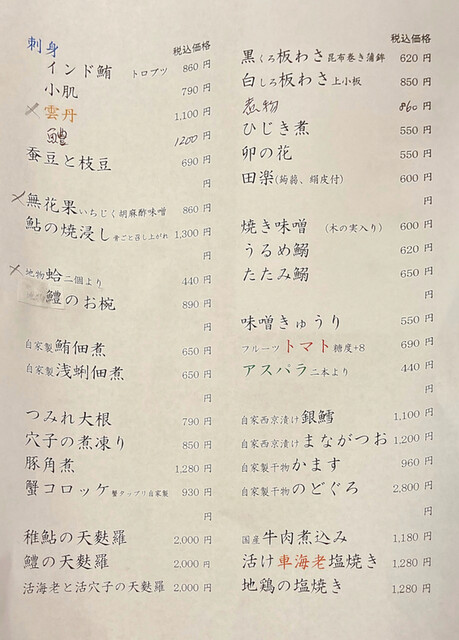 税込価格
刺身
インド鮪 トロブツ 860 円
小肌 790 円
雲丹 1,100 円
鱧 1200 円
蚕豆と枝豆 690 円
円
無花果 いちじく胡麻酢味噌 860 円
鮎の焼浸し 骨ごと召し上がれ 1,300 円
円
地物 蛤 二個より 440 円
鱧のお椀 890 円
円
自家製 鮪佃煮 650 円
自家製 浅蜊佃煮 650 円
円
つみれ大根 790 円
穴子の煮凍り 850 円
豚角煮 1,280 円
蟹コロッケ 蟹タップリ自家製 930 円
円
稚鮎の天麩羅 2,000 円
鱧の天麩羅 2,000 円
活海老と活穴子の天麩羅 2,000 円
税込価格
黒くろ板わさ 昆布巻き蒲鉾 620 円
白しろ板わさ 上小板 850 円
煮物 860 円
ひじき煮 550 円
卯の花 550 円
田楽(蒟蒻、絹皮付) 600 円
円
焼き味噌 (木の実入り) 600 円
うるめ鰯 620 円
たたみ鰯 650 円
円
味噌きゅうり 550 円
フルーツトマト 糖度+8 690 円
アスパラ 二本より 440 円
円
自家西京漬け 銀鱈 1,100 円
自家西京漬け まながつお 1,200 円
自家製干物 かます 960 円
自家製干物 のどぐろ 2,800 円
円
国産 牛肉煮込み 1,180 円
活け車海老塩焼き 1,280 円
地鶏の塩焼き 1,280 円